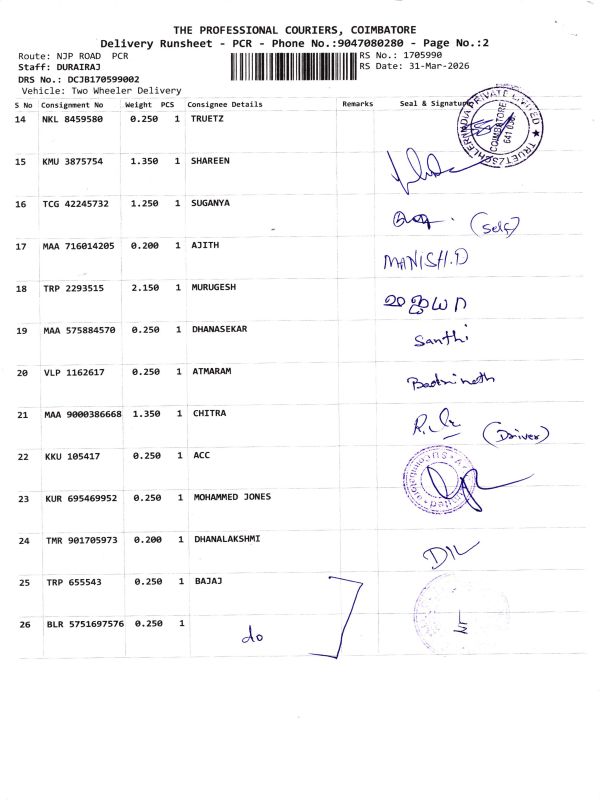 THE PROFESSIONAL COURIERS, COIMBATORE
Delivery Runsheet - PCR - Phone No.:9047080280 - Page No.:2
Route: NJP ROAD PCR
RS No.: 1705990
Staff: DURAIRAJ
RS Date: 31-Mar-2026
DRS No.: DCJB170599002
Vehicle: Two Wheeler Delivery
S No Consignment No Weight PCS Consignee Details Remarks Seal & Signature
14 NKL 8459580 0.250 1 TRUETZ
COIMBATORE
15 KMU 3875754 1.350 1 SHAREEN
16 TCG 42245732 1.250 1 SUGANYA
(self)
17 MAA 716014205 0.200 1 AJITH
MANISH.D
18 TRP 2293515 2.150 1 MURUGESH
19 MAA 575884570 0.250 1 DHANASEKAR
Santhi
20 VLP 1162617 0.250 1 ATMARAM
Badrinath
21 MAA 9000386668 1.350 1 CHITRA
(Driver)
22 KKU 105417 0.250 1 ACC
23 KUR 695469952 0.250 1 MOHAMMED JONES
24 TMR 901705973 0.200 1 DHANALAKSHMI
25 TRP 655543 0.250 1 BAJAJ
26 BLR 5751697576 0.250 1
do